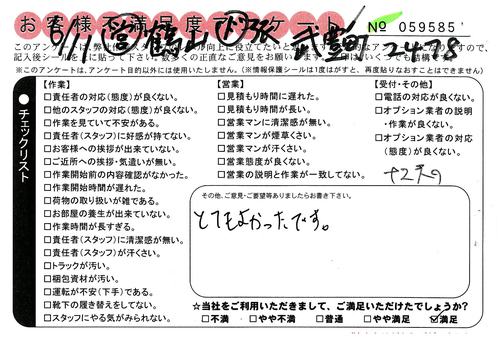 お客様不満足度アンケート
№ 059585
6/11 営 鶴山 下 張 武豊町 2478
※このアンケートは、アンケート目的以外には使用いたしません。(※情報保護シールは1度はがすと、再度貼りなおすことはできません)
チェックリスト
【作業】
□責任者の対応(態度)が良くない。
□他のスタッフの対応(態度)が良くない。
□作業を見ていて不安がある。
□責任者(スタッフ)に好感が持てない。
□お客様への挨拶が出来ていない。
□ご近所への挨拶・気遣いが無い。
□作業開始前の内容確認がなかった。
□作業開始時間が遅れた。
□荷物の取り扱いが雑である。
□お部屋の養生が出来ていない。
□作業時間が長すぎる。
□責任者(スタッフ)に清潔感が無い。
□責任者(スタッフ)が汗くさい。
□トラックが汚い。
□梱包資材が汚い。
□運転が不安(下手)である。
□靴下の履き替えをしてない。
□スタッフにやる気がみられない。
【営業】
□見積もり時間に遅れた。
□見積もり時間が長い。
□営業マンに清潔感が無い。
□営業マンが煙草くさい。
□営業マンが汗くさい。
□営業態度が良くない。
□営業の説明と作業が一致してない。
【受付・その他】
□電話の対応が良くない。
□オプション業者の説明
・作業が良くない。
□オプション業者の対応
(態度)が良くない。
その他、ご意見・ご要望等ありましたらお書き下さい。
とてもよかったです。
☆当社をご利用いただきまして、ご満足いただけたでしょうか?
□不満 □やや不満 □普通 □やや満足 ☑満足